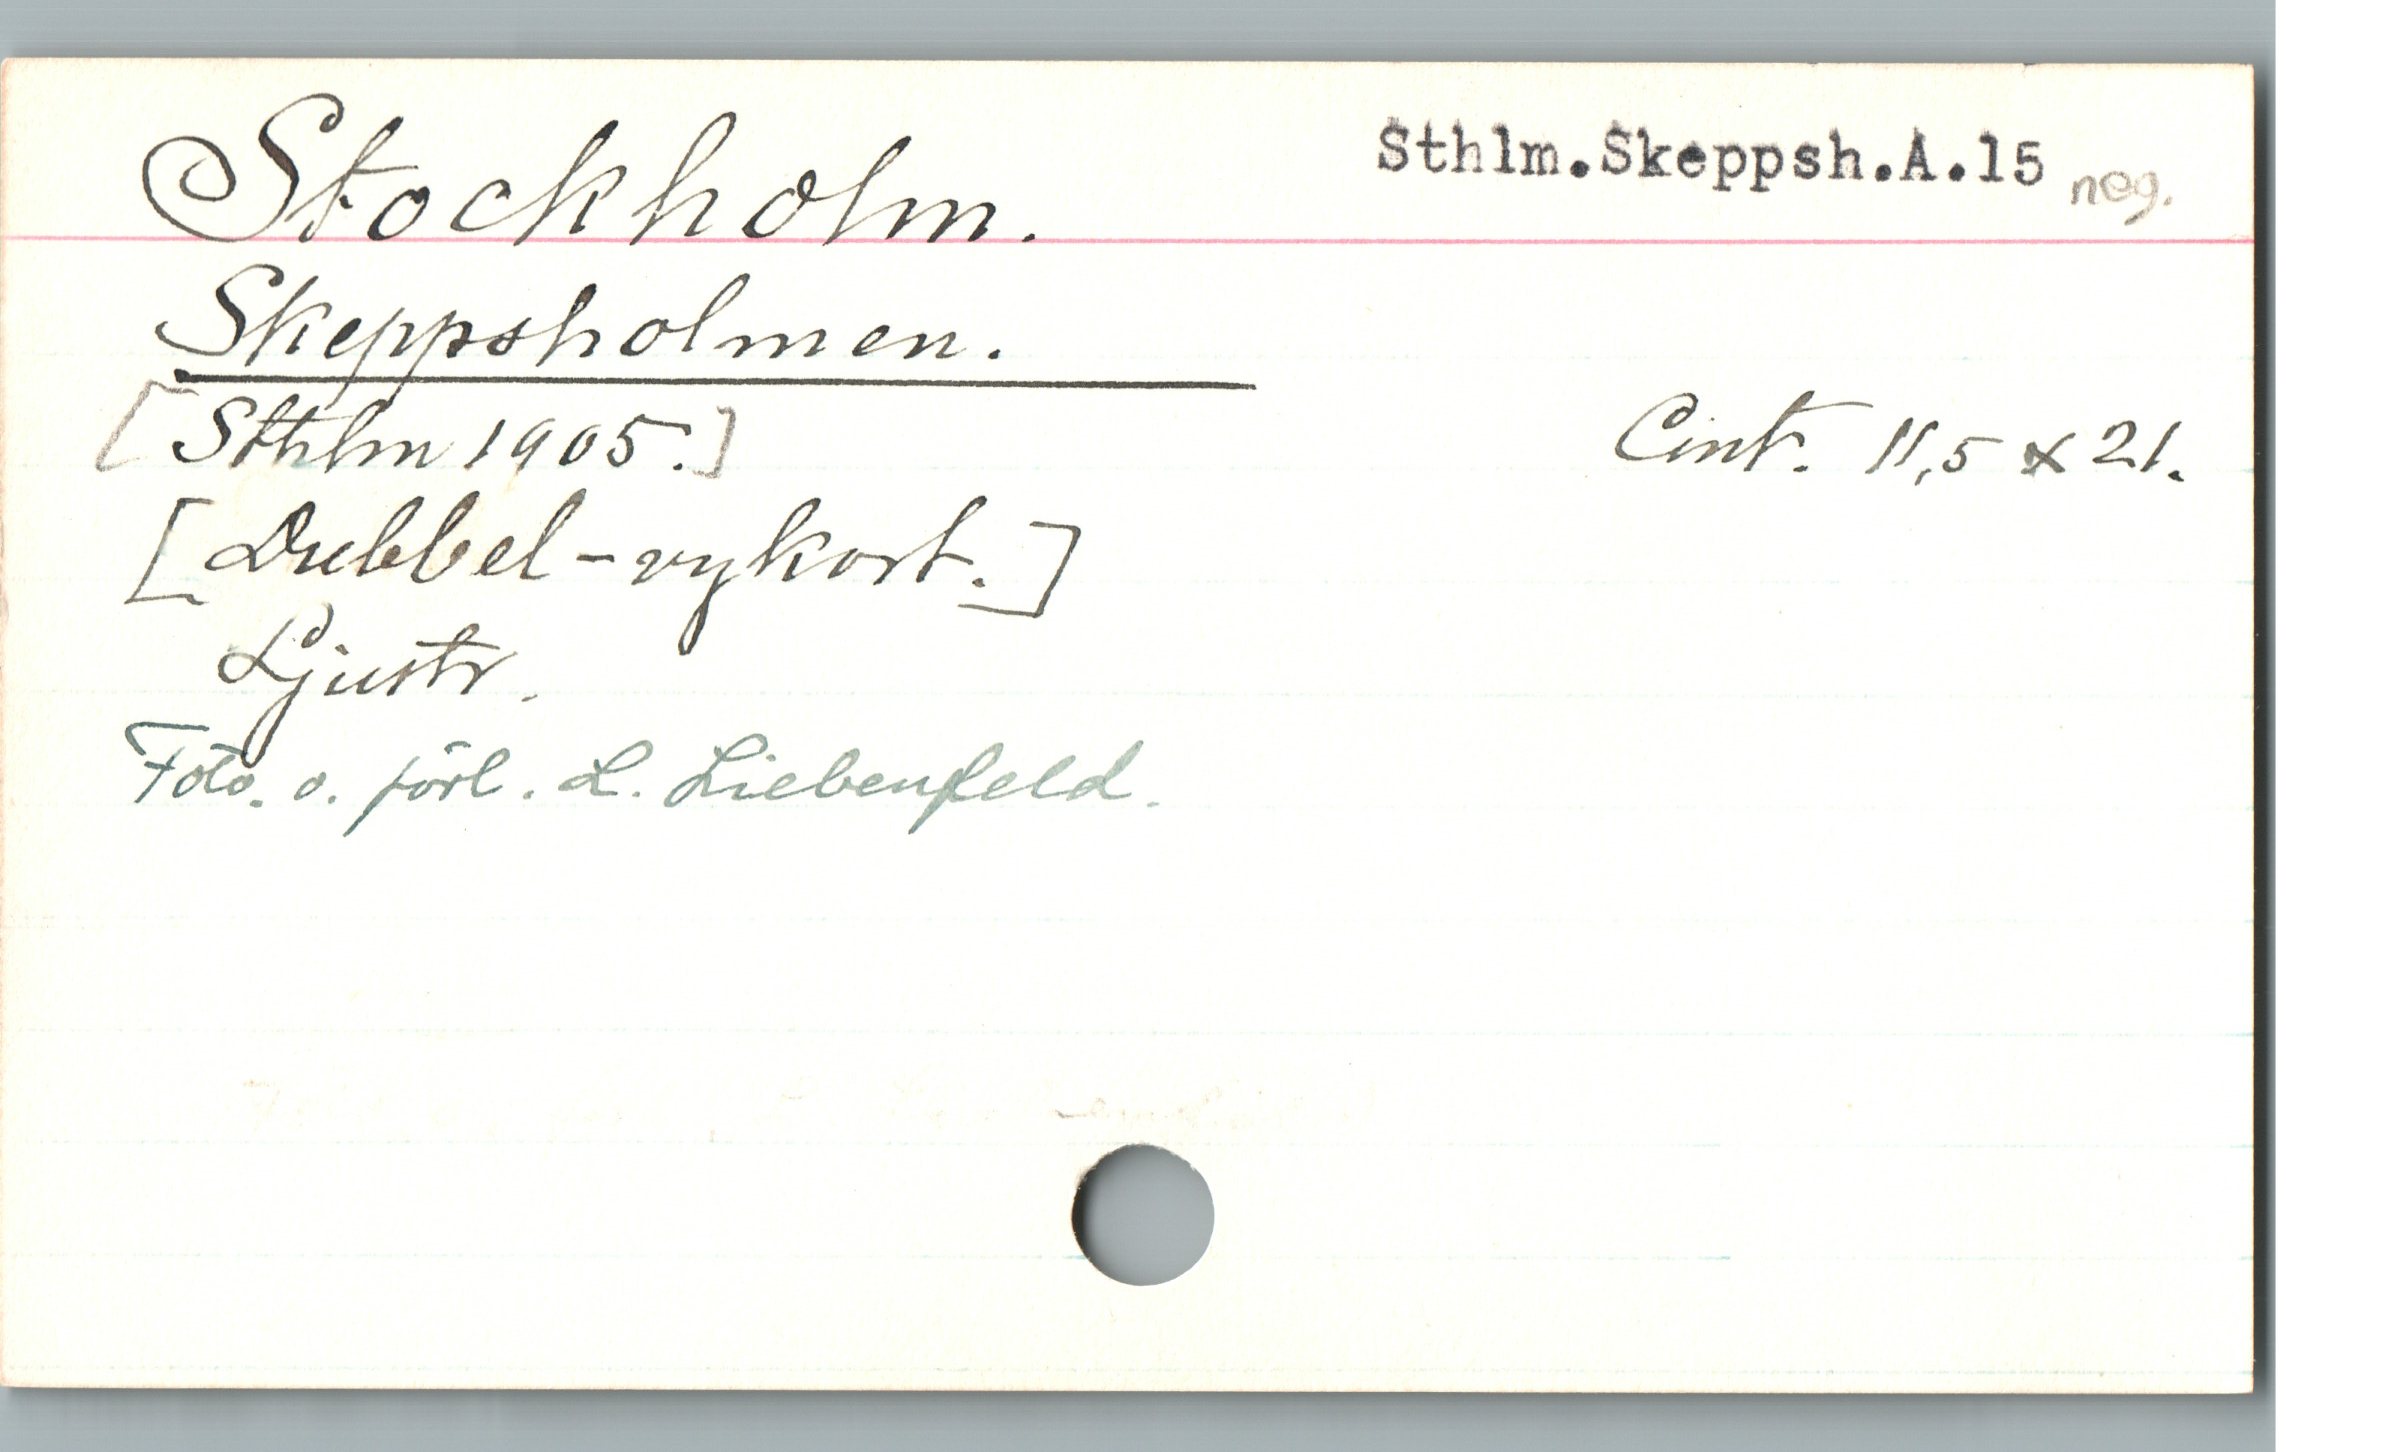 Stockholm.
Sthlm.Skeppsh.A.15 neg.
Skeppsholmen.
[Sthlm 1905.]
Cint. 11,5 x 21.
[Dubbel-vykort.]
Ljustr.
Foto. o. förl. L. Liebenfeld.